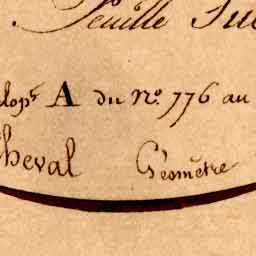 Feuille
A du N.º 776 au
Cheval Géomètre